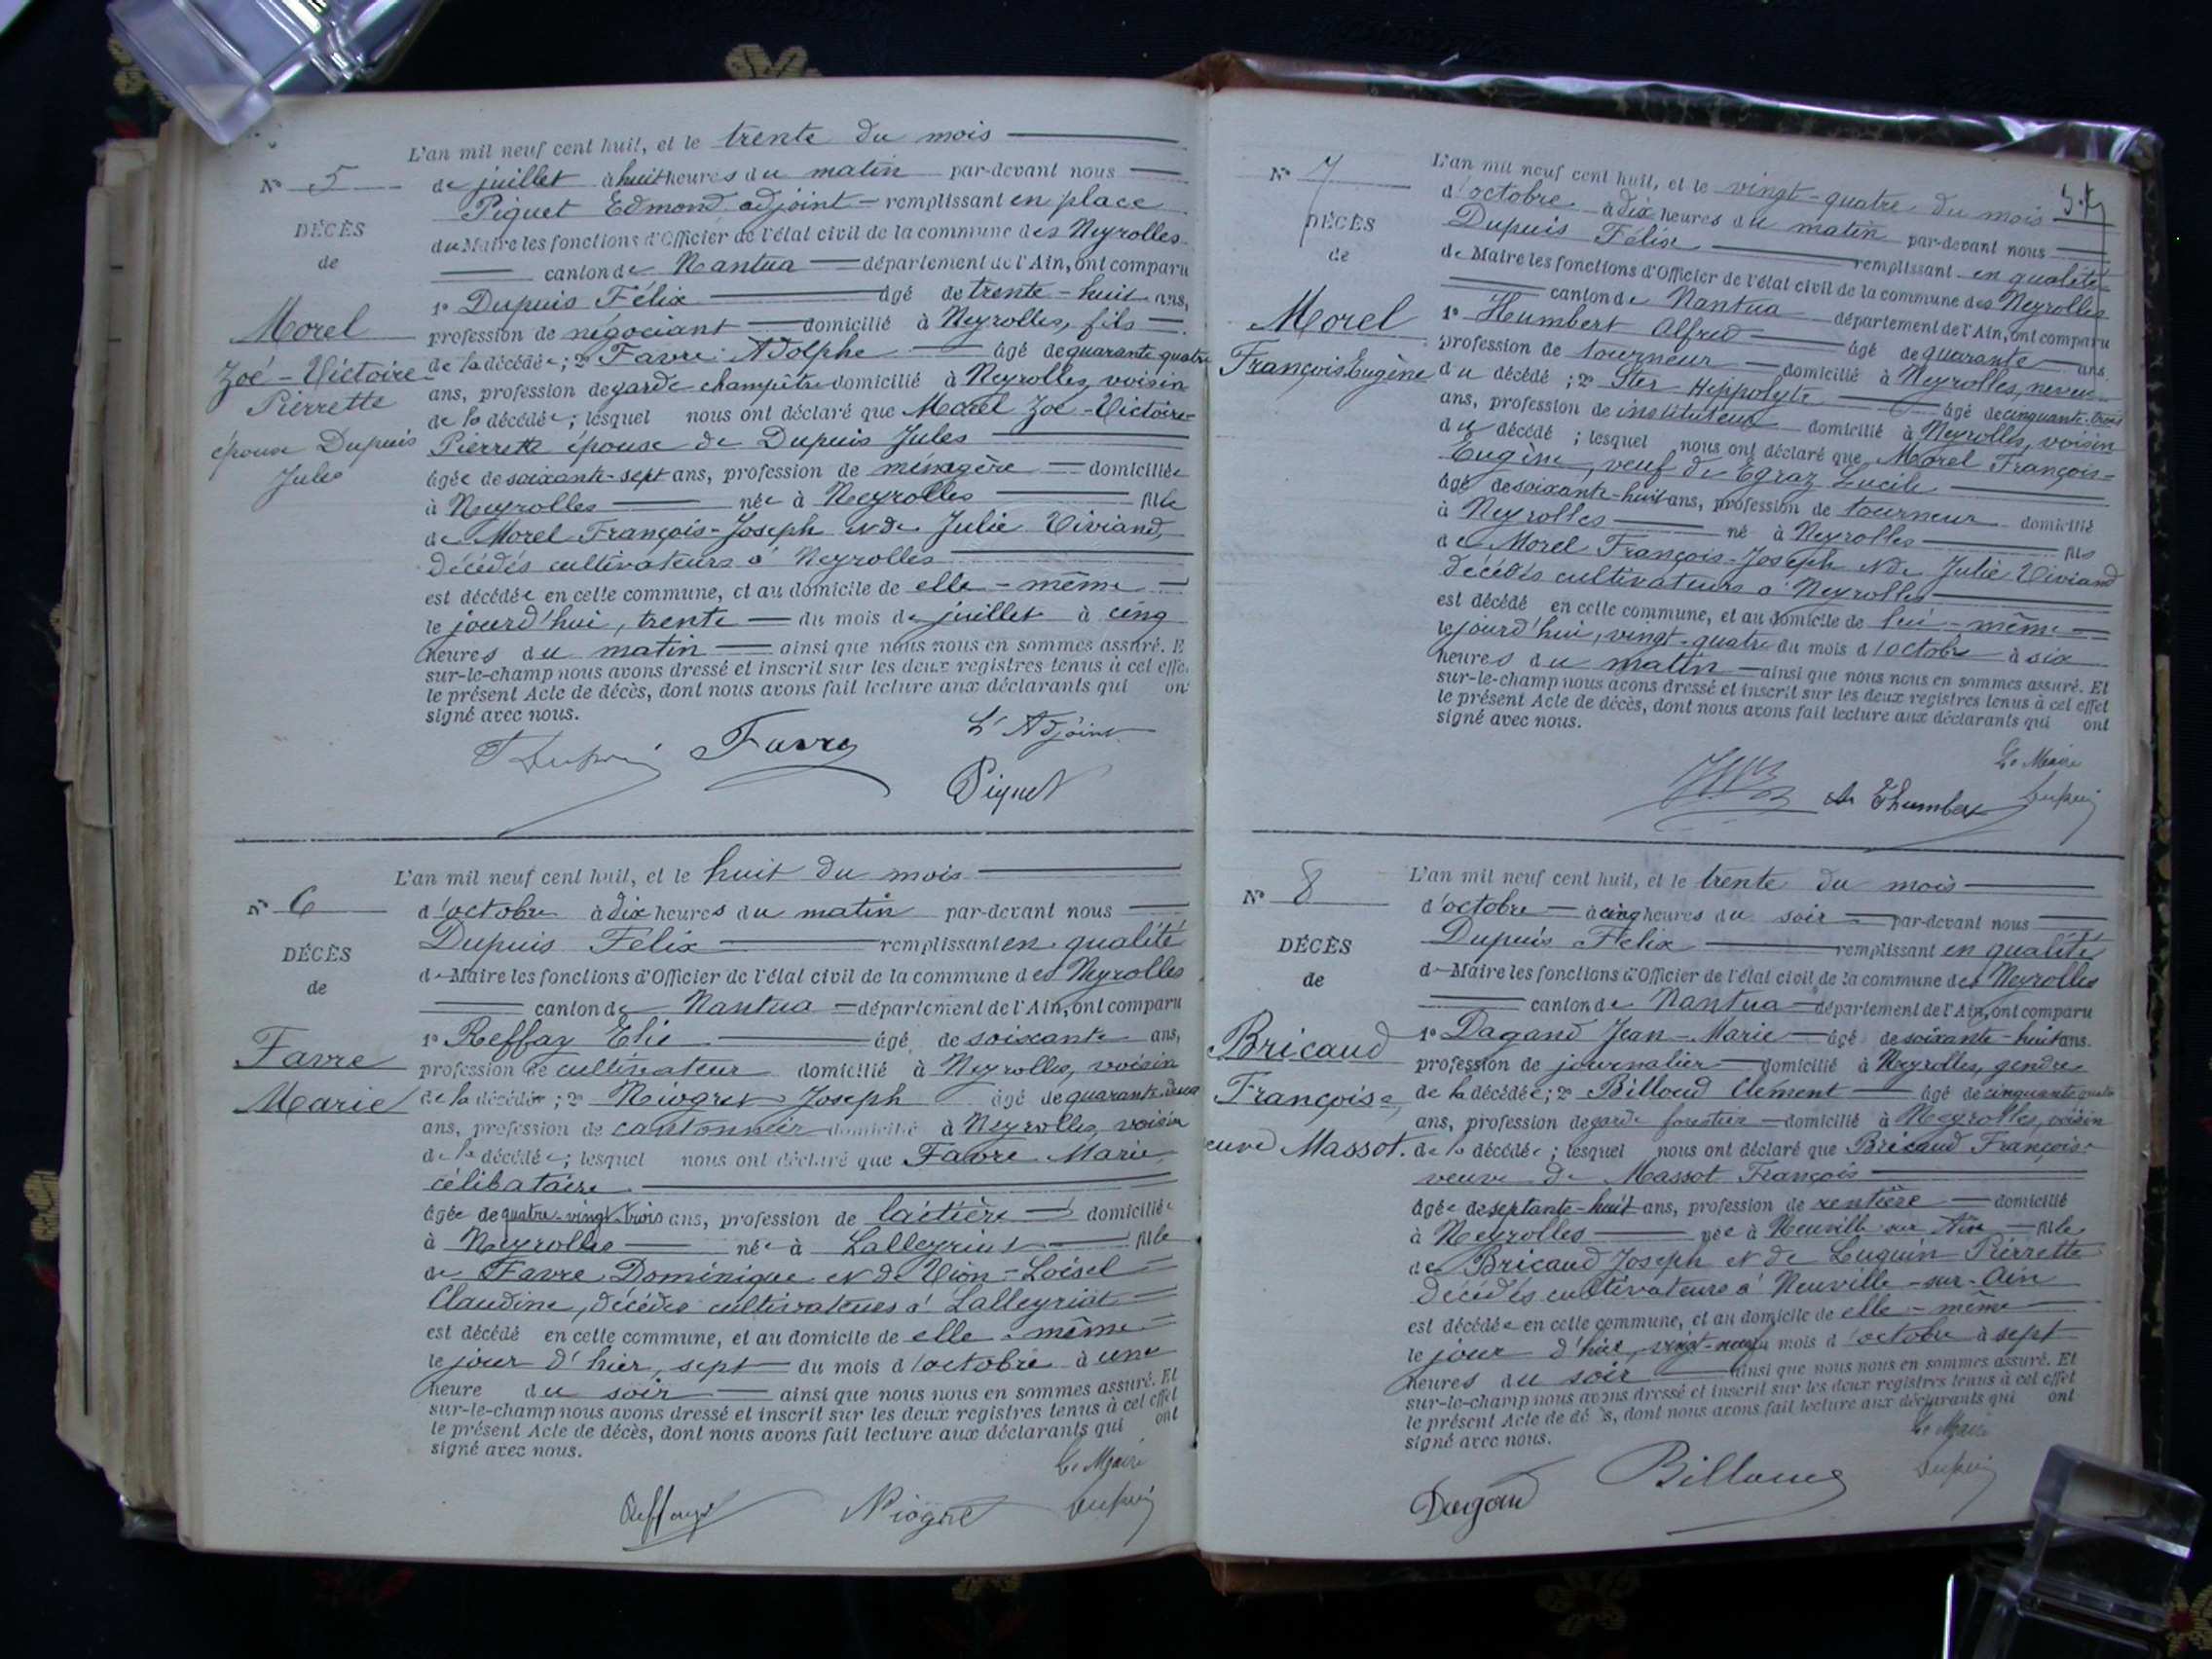 L'an mil neuf cent huit, et le trente du mois
N° 5
de juillet à huit heures du matin par-devant nous
Piquet Edmond adjoint remplissant en place
DÉCÈS
du Maire les fonctions d'Officier de l'état civil de la commune des Neyrolles
de
canton de Nantua département de l'Ain, ont comparu
1° Dupuis Félix âgé de trente-huit ans,
Morel
profession de négociant domicilié à Neyrolles, fils
Zoé-Victoire
de la décédée ; 2° Favre Adolphe âgé de quarante quatre
Pierrette
ans, profession de garde champêtre domicilié à Neyrolles, voisin
de la décédée ; lesquel nous ont déclaré que Morel Zoé-Victoire-
épouse Dupuis
Pierrette épouse de Dupuis Jules
Jules
âgée de soixante-sept ans, profession de ménagère domiciliée
à Neyrolles née à Neyrolles fille
de Morel François-Joseph et de Julie Viviand,
décédés cultivateurs à Neyrolles
est décédée en cette commune, et au domicile de elle-même
le jourd'hui, trente du mois de juillet à cinq
heures du matin ainsi que nous nous en sommes assuré. E
sur-le-champ nous avons dressé et inscrit sur les deux registres tenus à cet effe
le présent Acte de décès, dont nous avons fait lecture aux déclarants qui on
signé avec nous.
L'Adjoint
F Dupuis Favre
Piquet
L'an mil neuf cent huit, et le huit du mois
N° 6
d'octobre à dix heures du matin par-devant nous
Dupuis Félix remplissant en qualité
DÉCÈS
de Maire les fonctions d'Officier de l'état civil de la commune des Neyrolles
de
canton de Nantua département de l'Ain, ont comparu
1° Reffay Elie âgé de soixante ans,
Favre
profession de cultivateur domicilié à Neyrolles, voisin
Marie
de la décédée ; 2° Niogret Joseph âgé de quarante deux
ans, profession de cantonnier domicilié à Neyrolles, voisin
de la décédée ; lesquel nous ont déclaré que Favre Marie
célibataire
âgée de quatre-vingt-trois ans, profession de laitière domiciliée
à Neyrolles née à Lalleyriat fille
de Favre Dominique et de Vion-Loisel
Claudine, décédés cultivateurs à Lalleyriat
est décédé en cette commune, et au domicile de elle-même
le jour d'hier, sept du mois d'octobre à une
heure du soir ainsi que nous nous en sommes assuré. Et
sur-le-champ nous avons dressé et inscrit sur les deux registres tenus à cet effet
le présent Acte de décès, dont nous avons fait lecture aux déclarants qui ont
signé avec nous.
Le Maire
Reffay Niogret Dupuis
L'an mil neuf cent huit, et le vingt-quatre du mois
N° 7
d'octobre à dix heures du matin par-devant nous
DÉCÈS
Dupuis Félix remplissant en qualité
de
de Maire les fonctions d'Officier de l'état civil de la commune des Neyrolles
canton de Nantua département de l'Ain, ont comparu
Morel
1° Humbert Alfred âgé de quarante ans.
François Eugène
profession de tourneur domicilié à Neyrolles, neveu
du décédé ; 2° Ster Hippolyte âgé de cinquante-trois
ans, profession de instituteur domicilié à Neyrolles, voisin
du décédé ; lesquel nous ont déclaré que Morel François-
Eugène, veuf de Egraz Lucile
âgé de soixante-huit ans, profession de tourneur domicilié
à Neyrolles né à Neyrolles fils
de Morel François-Joseph et de Julie Viviand
décédés cultivateurs à Neyrolles
est décédé en cette commune, et au domicile de lui-même
le jourd'hui, vingt-quatre du mois d'octobre à six
heures du matin ainsi que nous nous en sommes assuré. Et
sur-le-champ nous avons dressé et inscrit sur les deux registres tenus à cet effet
le présent Acte de décès, dont nous avons fait lecture aux déclarants qui ont
signé avec nous.
Le Maire
Humbert Dupuis
L'an mil neuf cent huit, et le trente du mois
N° 8
d'octobre à cinq heures du soir par-devant nous
Dupuis Félix remplissant en qualité
DÉCÈS
de Maire les fonctions d'Officier de l'état civil de la commune des Neyrolles
de
canton de Nantua département de l'Ain, ont comparu
Bricaud
1° Dagand Jean-Marie âgé de soixante-huit ans.
profession de journalier domicilié à Neyrolles, gendre
Françoise,
de la décédée ; 2° Billoud Clément âgé de cinquante quatre
ans, profession de garde forestier domicilié à Neyrolles, voisin
euve Massot.
de la décédée ; lesquel nous ont déclaré que Bricaud Françoise
veuve de Massot François
âgée de septante-huit ans, profession de rentière domicilié
à Neyrolles née à Neuville sur Ain fille
de Bricaud Joseph et de Luquin Pierrette
décédés cultivateurs à Neuville-sur-Ain
est décédée en cette commune, et au domicile de elle-même
le jour d'hier, vingt-neuf du mois d'octobre à sept
heures du soir ainsi que nous nous en sommes assuré. Et
sur-le-champ nous avons dressé et inscrit sur les deux registres tenus à cet effet
le présent Acte de décès, dont nous avons fait lecture aux déclarants qui ont
signé avec nous.
Le Maire
Dagand Billoud Dupuis